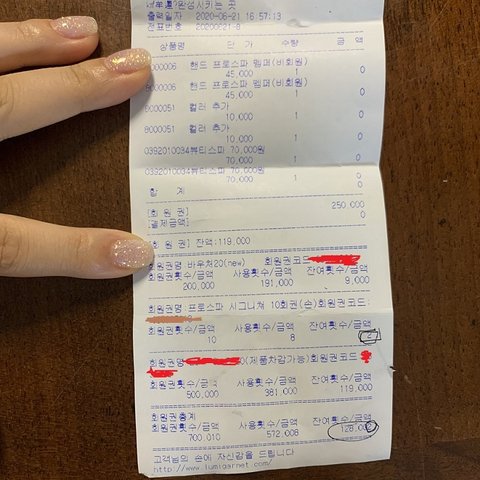 완성시키는 곳
출력일자 2020-06-21 16:57:13
전표번호 20200621-8
상품명 단 가 수량 금 액
0000006 핸드 프로스파 멤퍼(비회원)
45,000 1 0
8000006 핸드 프로스파 멤퍼(비회원)
45,000 1 0
8000051 컬러 추가
10,000 1 0
8000051 컬러 추가
10,000 1 0
0392010034뷰티스파 70,000원
70,000 1 0
0392010034뷰티스파 70,000원
70,000 1 0
합 계
[회 원 권] 250,000
[결제금액] 0
[회 원 권] 잔액:119,000
회원권명 바우처20(new) 회원권코드
회원권횟수/금액 사용횟수/금액 잔여횟수/금액
200,000 191,000 9,000
회원권명 프로스파 시그니쳐 10회권(손)회원권코드:
회원권횟수/금액 사용횟수/금액 잔여횟수/금액
10 8 2
회원권명 0(제품차감가능)회원권코드
회원권횟수/금액 사용횟수/금액 잔여횟수/금액
500,000 381,000 119,000
회원권총계
회원권횟수/금액 사용횟수/금액 잔여횟수/금액
700,010 572,008 128,00
고객님의 손에 자신감을 드립니다
http://www.lumigarnet.com/